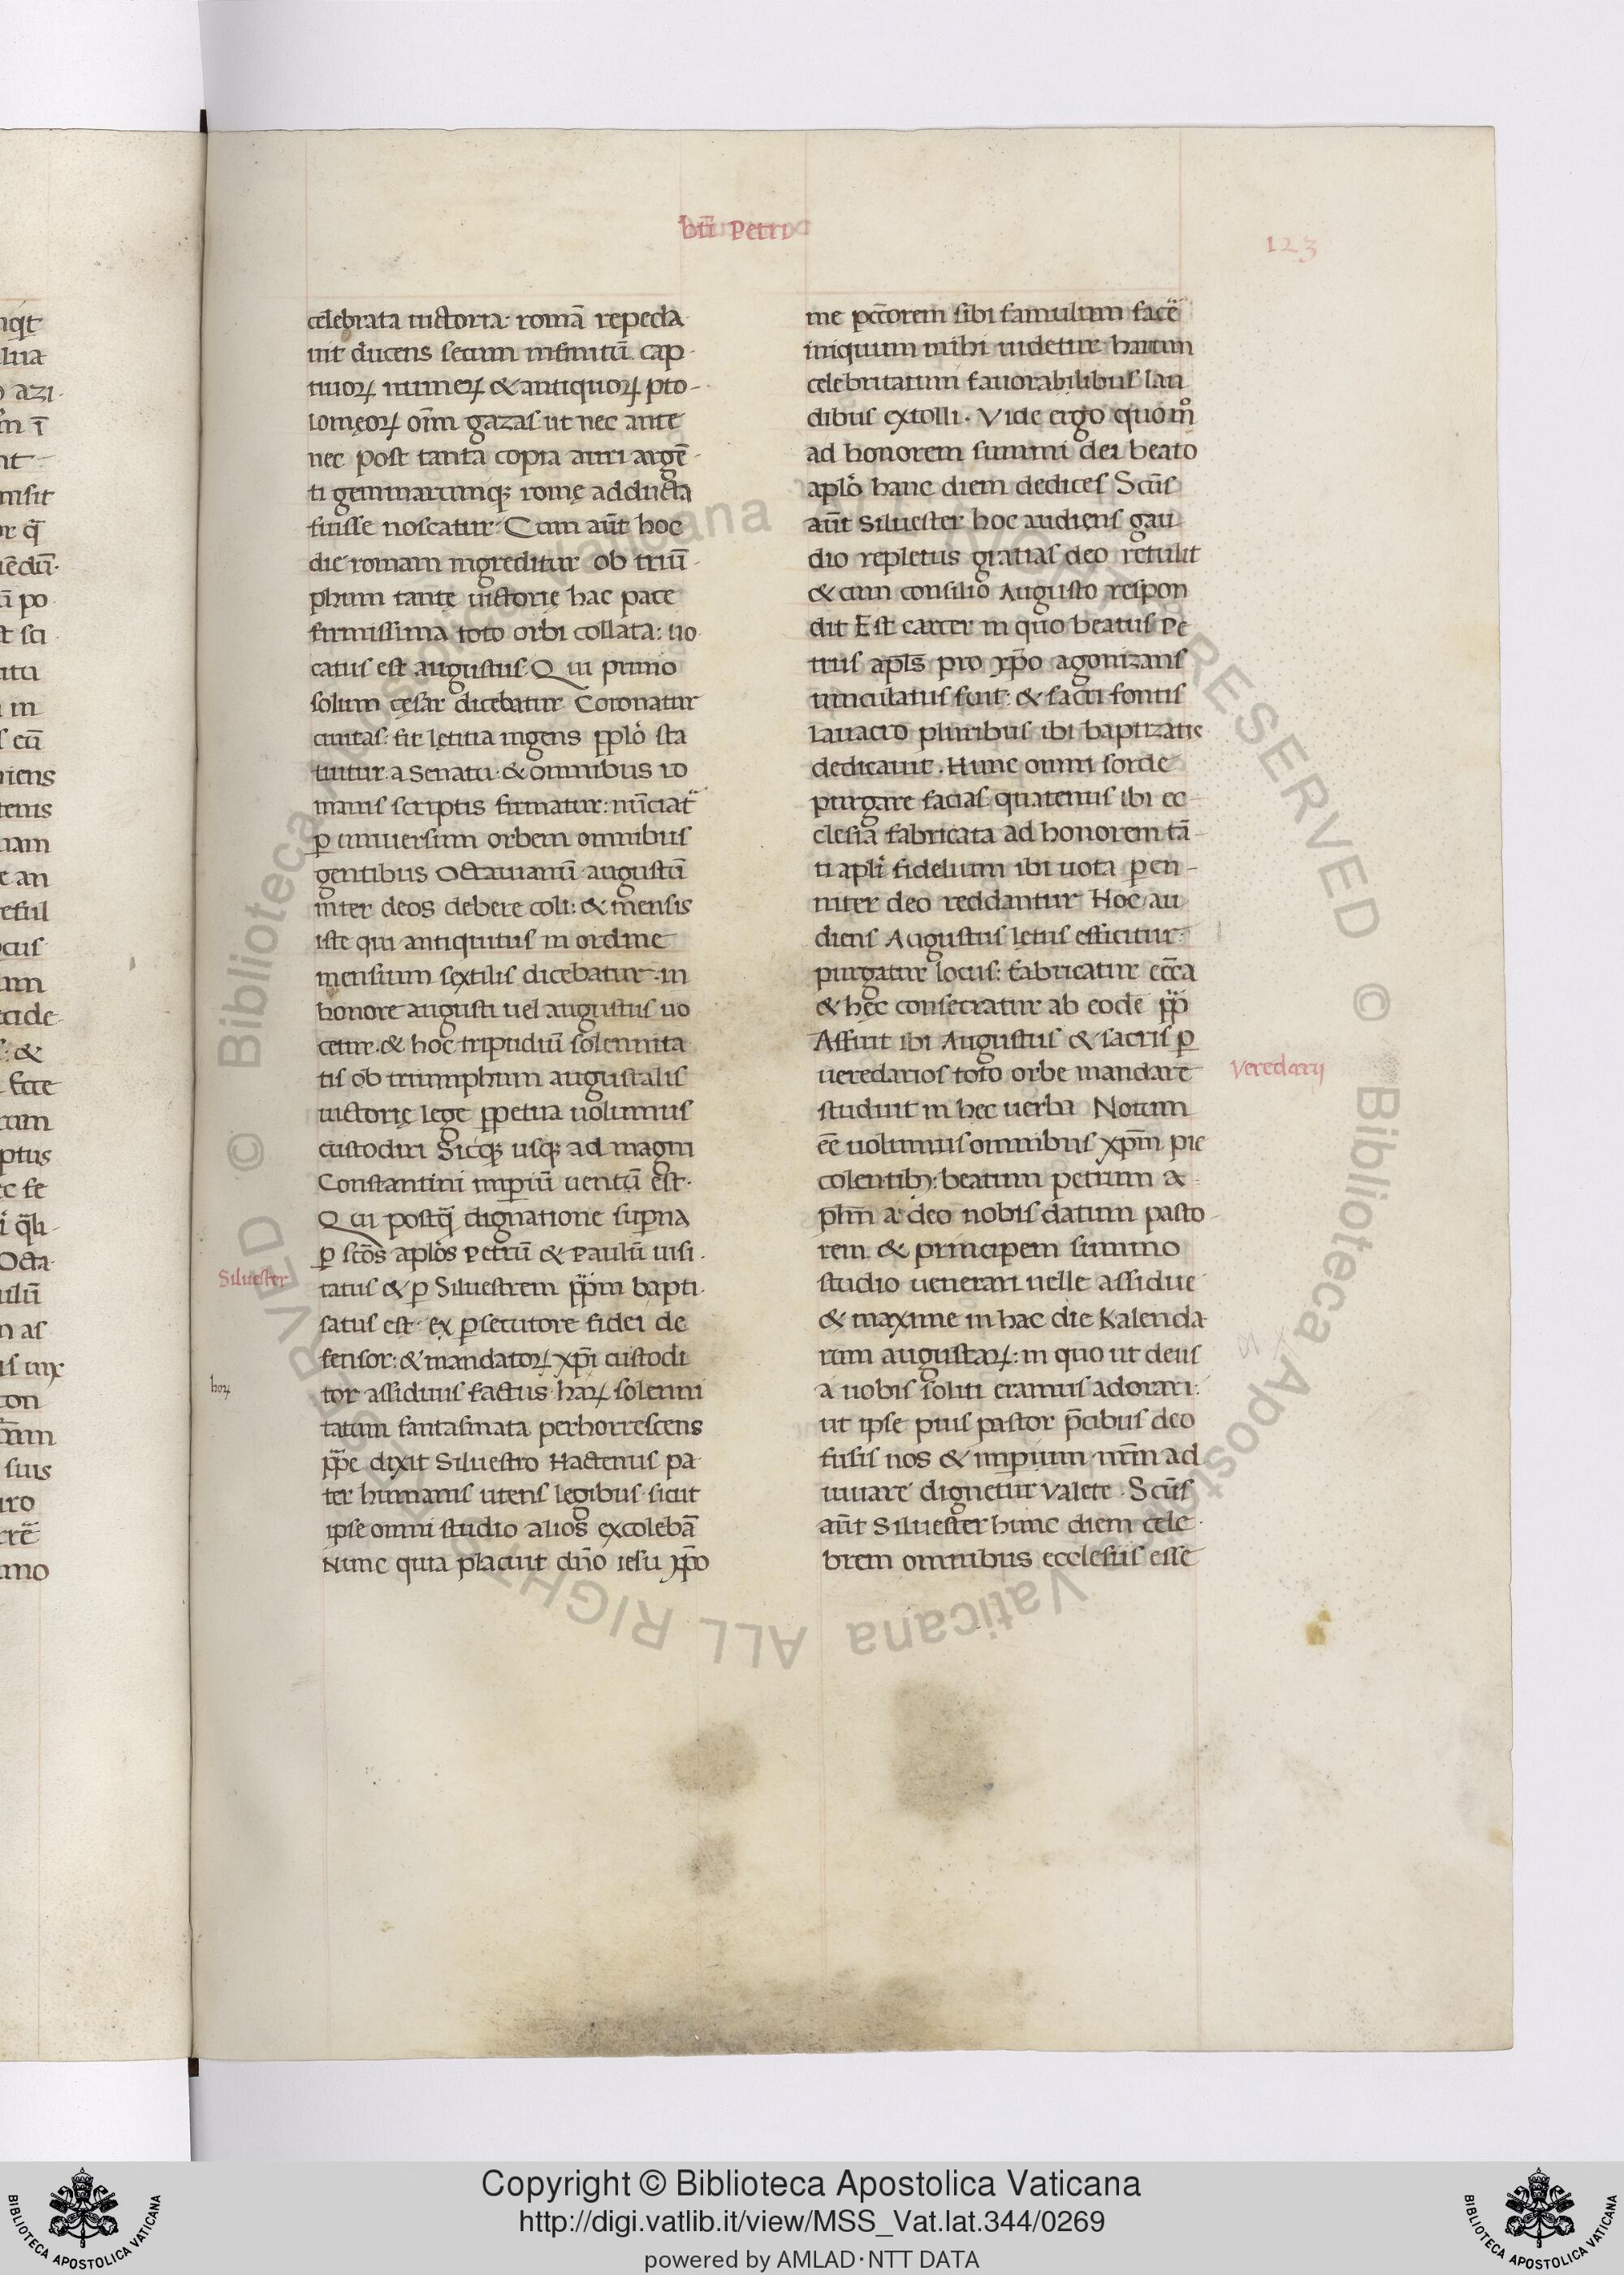 bti Petri
123
celebrata uictoria· romā repeda
uit ducens secum infinitū cap-
tiuoꝝ numeꝝ & antiquoꝝ pto-
lomęoꝝ om̄m gazas ut nec ante
nec post tanta copia auri argē-
ti gemmarumqꝫ romę adducta
fuisse noscatur· Cum aūt hoc
die romam ingreditur ob triū-
phum tantę uictorię hac pace
firmissima toto orbi collata: uo-
catus est augustus. Qui primo
solum cęsar dicebatur Coronatur
ciuitas: fit lętitia ingens pplo sta
tuitur a senatu· & omnibus ro
manis scriptis firmatur: nūciat᷑
ꝑ uniuersum orbem omnibus
gentibus octauianū augustū
inter deos debere coli: & mensis
iste qui antiquitus in ordine
mensium sextilis dicebatur· in
honore augusti uel augustus uo
cetur· & hoc tripudiū solennita
tis ob triumphum augustalis
uictorię lege ꝑpetua uolumus
custodiri Sicqꝫ usqꝫ ad magni
Constantini imperiū uentū est·
Qui postq̄ dignatione superna
ꝑ scōs aplos Petrū & Paulū uisi-
Siluester
tatus & ꝑ Siluestrem pp̄m bapti-
satus est· ex ꝑsecutore fidei de
fensor: & mandatoꝝ xp̄i custodi
hoꝝ
tor assiduus factus· haꝝ solenni
tatum fantasmata perhorrescens
pp̄e dixit Siluestro Hactenus pa
ter humanis utens legibus· sicut
ipse omni studio alios excolebā
Nunc quia placuit dn̄o iesu xp̄o
me pctōrem sibi famulum facē
iniquum mihi uidetur harum
celebritatum fauorabilibus lau
dibus extolli· Vide ergo quom̊
ad honorem summi dei beato
aplo hanc diem dedices Scūs
aūt Siluester hoc audiens gau
dio repletus gratias deo retulit
& cum consilio Augusto respon
dit Est carcer in quo beatus Pe
trus apls̄ pro xp̄o agonizans
uinculatus fuit: & sacri fontis
lauacro pluribus ibi baptizatis
dedicauit· Hunc omni sorde
purgare facias· quatenus ibi ec-
clesia fabricata ad honorem tā-
ti apli fidelium ibi uota ꝑen-
niter deo reddantur Hoc au
diens Augustus lętus efficitur·
purgatur locus: fabricatur ecc̄a
& hęc consecratur ab eode pp̄
Affuit ibi Augustus & sacris ꝑ
ueredarios toto orbe mandare
Veredarij
studuit in hec uerba Notum
eē uolumus omnibus xp̄m pie
colentibꝫ: beatum petrum a-
plm̄ a deo nobis datum pasto-
rem & principem summo
studio uenerari uelle assidue
& maxime in hac die Kalenda
rum augustaꝝ: in quo ut deus
a uobis soliti eramus adorari:
ut ipse pius pastor p̄cibus deo
fusis nos & imperium nr̄m ad
iuuare dignetur Valete· Scūs
aūt Siluester hunc diem cele-
brem omnibus ecclesiis esse
Copyright © Biblioteca Apostolica Vaticana
http://digi.vatlib.it/view/MSS_Vat.lat.344/0269
powered by AMLAD·NTT DATA